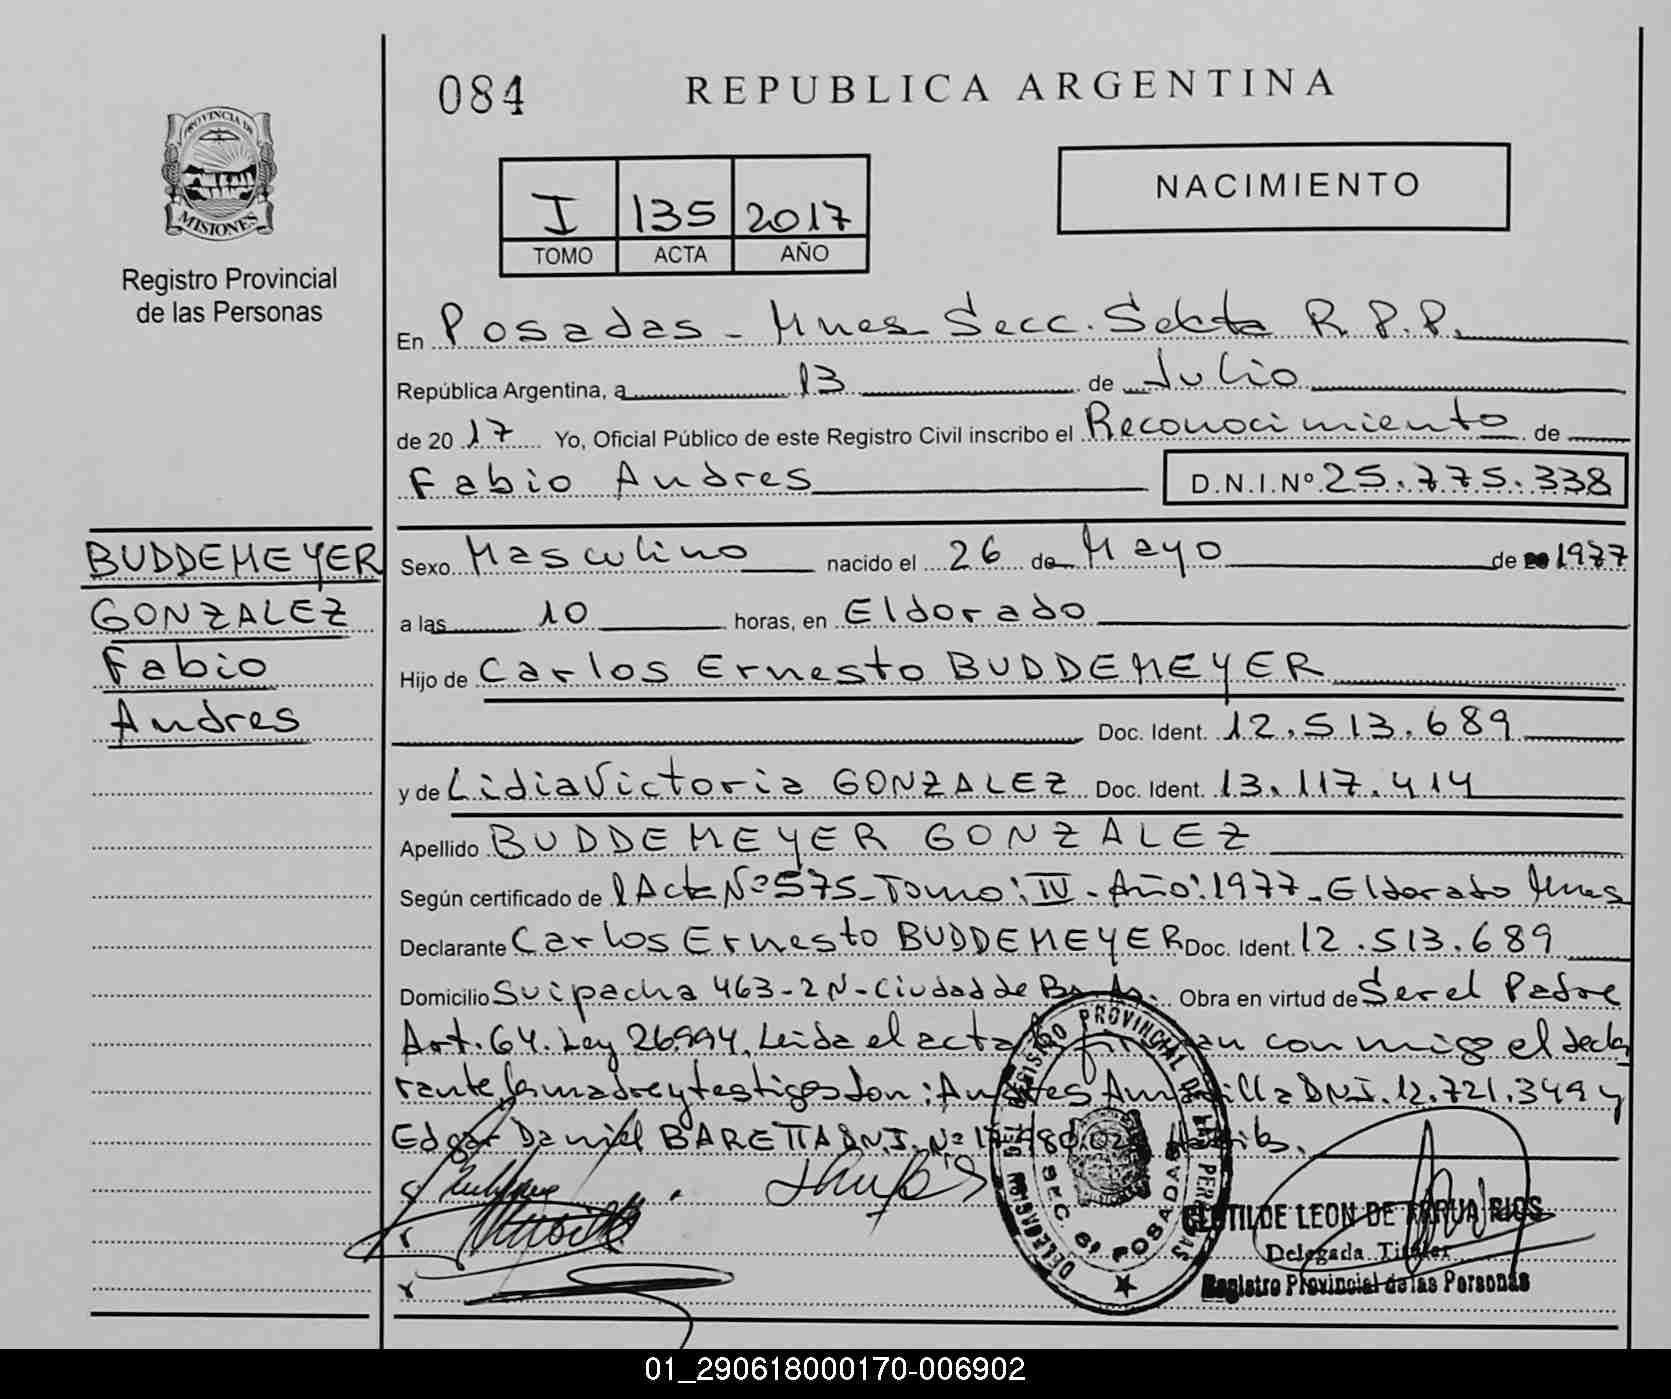 084
REPUBLICA ARGENTINA
PROVINCIA DE
MISIONES
Registro Provincial
de las Personas
NACIMIENTO
I 135 2017
TOMO ACTA AÑO
En Posadas - Mnes Secc. Sexta R.P.P.
República Argentina, a 13 de Julio
de 2017 Yo, Oficial Público de este Registro Civil inscribo el Reconocimiento de
Fabio Andres D.N.I.Nº 25.775.338
BUDDEMEYER
GONZALEZ
Fabio
Andres
Sexo Masculino nacido el 26 de Mayo de 1977
a las 10 horas, en Eldorado
Hijo de Carlos Ernesto BUDDEMEYER
Doc. Ident. 12.513.689
y de Lidia Victoria GONZALEZ Doc. Ident. 13.117.414
Apellido BUDDEMEYER GONZALEZ
Según certificado de l Acta Nº 575 - Tomo: IV - Año: 1977 - Eldorado Mnes
Declarante Carlos Ernesto BUDDEMEYER Doc. Ident. 12.513.689
Domicilio Suipacha 463-2N-Ciudad de Bs. As. Obra en virtud de Ser el Padre
Art. 64. Ley 26994. Leida el acta la firman conmigo el decla
rante, la madre y testigos son: DNI. 12.721.349 y
Edgar Daniel BARETTA DNI. Nº
REGISTRO PROVINCIAL DE LAS PERSONAS
DELEGACION
SEC. 6ª POSADAS
CLOTILDE LEON DE ARRUA RIOS
Delegada Titular
Registro Provincial de las Personas
01_290618000170-006902